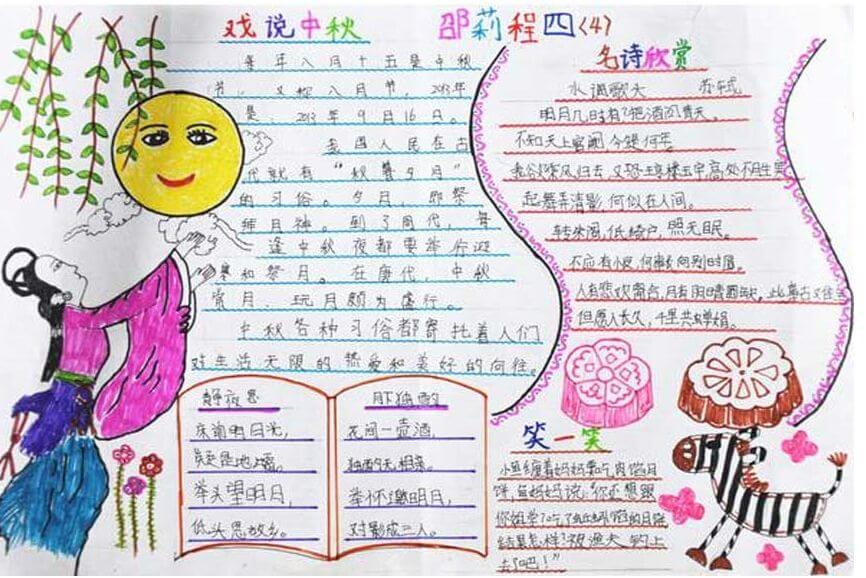 戏说中秋
邵莉程四(4)
每年八月十五是中秋
节，又称八月节，2013年
是，2013年9月16日。
我国人民在古
代就有“秋暮夕月”
的习俗。夕月，即祭
拜月神。到了周代，每
逢中秋夜都要举行迎
寒和祭月。在唐代，中秋
赏月、玩月颇为盛行。
中秋各种习俗都寄托着人们
对生活无限的热爱和美好的向往。
名诗欣赏
水调歌头 苏轼
明月几时有？把酒问青天。
不知天上宫阙，今夕是何年
我欲乘风归去，又恐琼楼玉宇，高处不胜寒
起舞弄清影，何似在人间。
转朱阁，低绮户，照无眠。
不应有恨，何事长向别时圆。
人有悲欢离合，月有阴晴圆缺，此事古难全
但愿人长久，千里共婵娟。
静夜思
床前明月光，
疑是地上霜。
举头望明月，
低头思故乡。
月下独酌
花间一壶酒，
独酌无相亲。
举杯邀明月，
对影成三人。
笑一笑
小鱼缠着妈妈要吃肉馅月
饼，鱼妈妈说：“你还想跟
你姐学？吃了蚯蚓馅的月饼
结果怎样？被渔夫钓上
去了吧！”